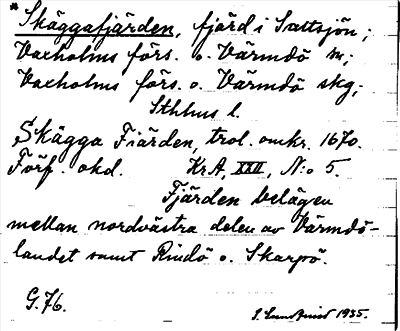 * Skäggafjärden, fjärd i Saltsjön;
Vaxholms förs. o. Värmdö m;
Vaxholms förs. o. Värmdö skg;
Sthlms l.
Skägga Fiärden, trol. omkr. 1670.
Förf. okd. KrA, XXII, N:o 5.
Fjärden belägen
mellan nordvästra delen av Värmdö-
landet samt Rindö o. Skarpö.
G. 76.
1935.